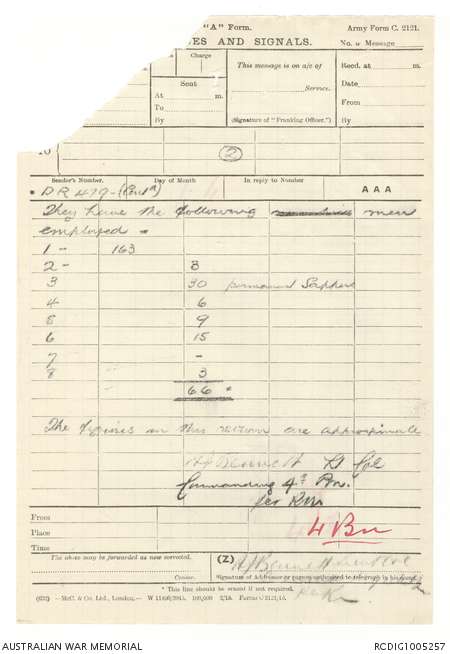 "A" Form.
Army Form C. 2121.
ES AND SIGNALS.
No. of Message
Charge
Sent
At m.
To
By
This message is on a/c of
Service.
(Signature of "Franking Officer.")
Recd. at m.
Date
From
By
TO
(2)
Sender's Number.
Day of Month
In reply to Number
AAA
DR 479 -
They have the following men
employed -
1 - 163
2 - 3
3 30 permanent Sappers
4 6
5 9
6 15
7 -
8 3
66
The figures in this return are approximate
Lt Col
Commanding 4th Bn.
From
Place
Time
4 Bn
The above may be forwarded as now corrected.
(Z)
Censor.
Signature of Addressor or person authorised to telegraph in his name.
* This line should be erased if not required.
AUSTRALIAN WAR MEMORIAL
RCDIG1005257